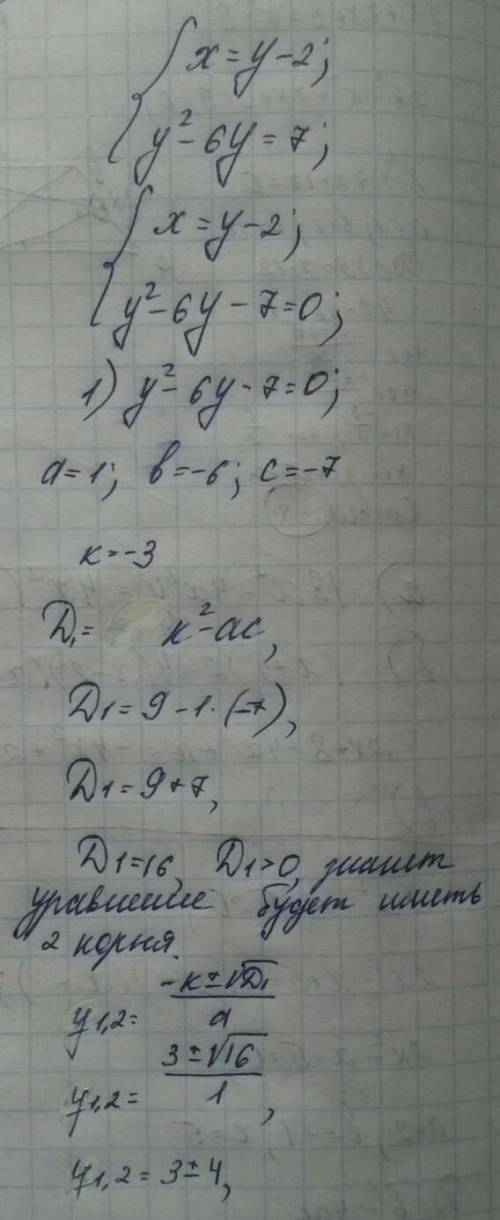 { x = y - 2;
y² - 6y = 7;
{ x = y - 2;
y² - 6y - 7 = 0;
1) y² - 6y - 7 = 0;
a = 1; b = -6; c = -7
к = -3
D₁ = к² - ac,
D1 = 9 - 1 · (-7),
D1 = 9 + 7,
D1 = 16, D1 > 0, значит
уравнение будет иметь
2 корня.
y1,2 = (-к ± √D₁) / a
y1,2 = (3 ± √16) / 1,
y1,2 = 3 ± 4,